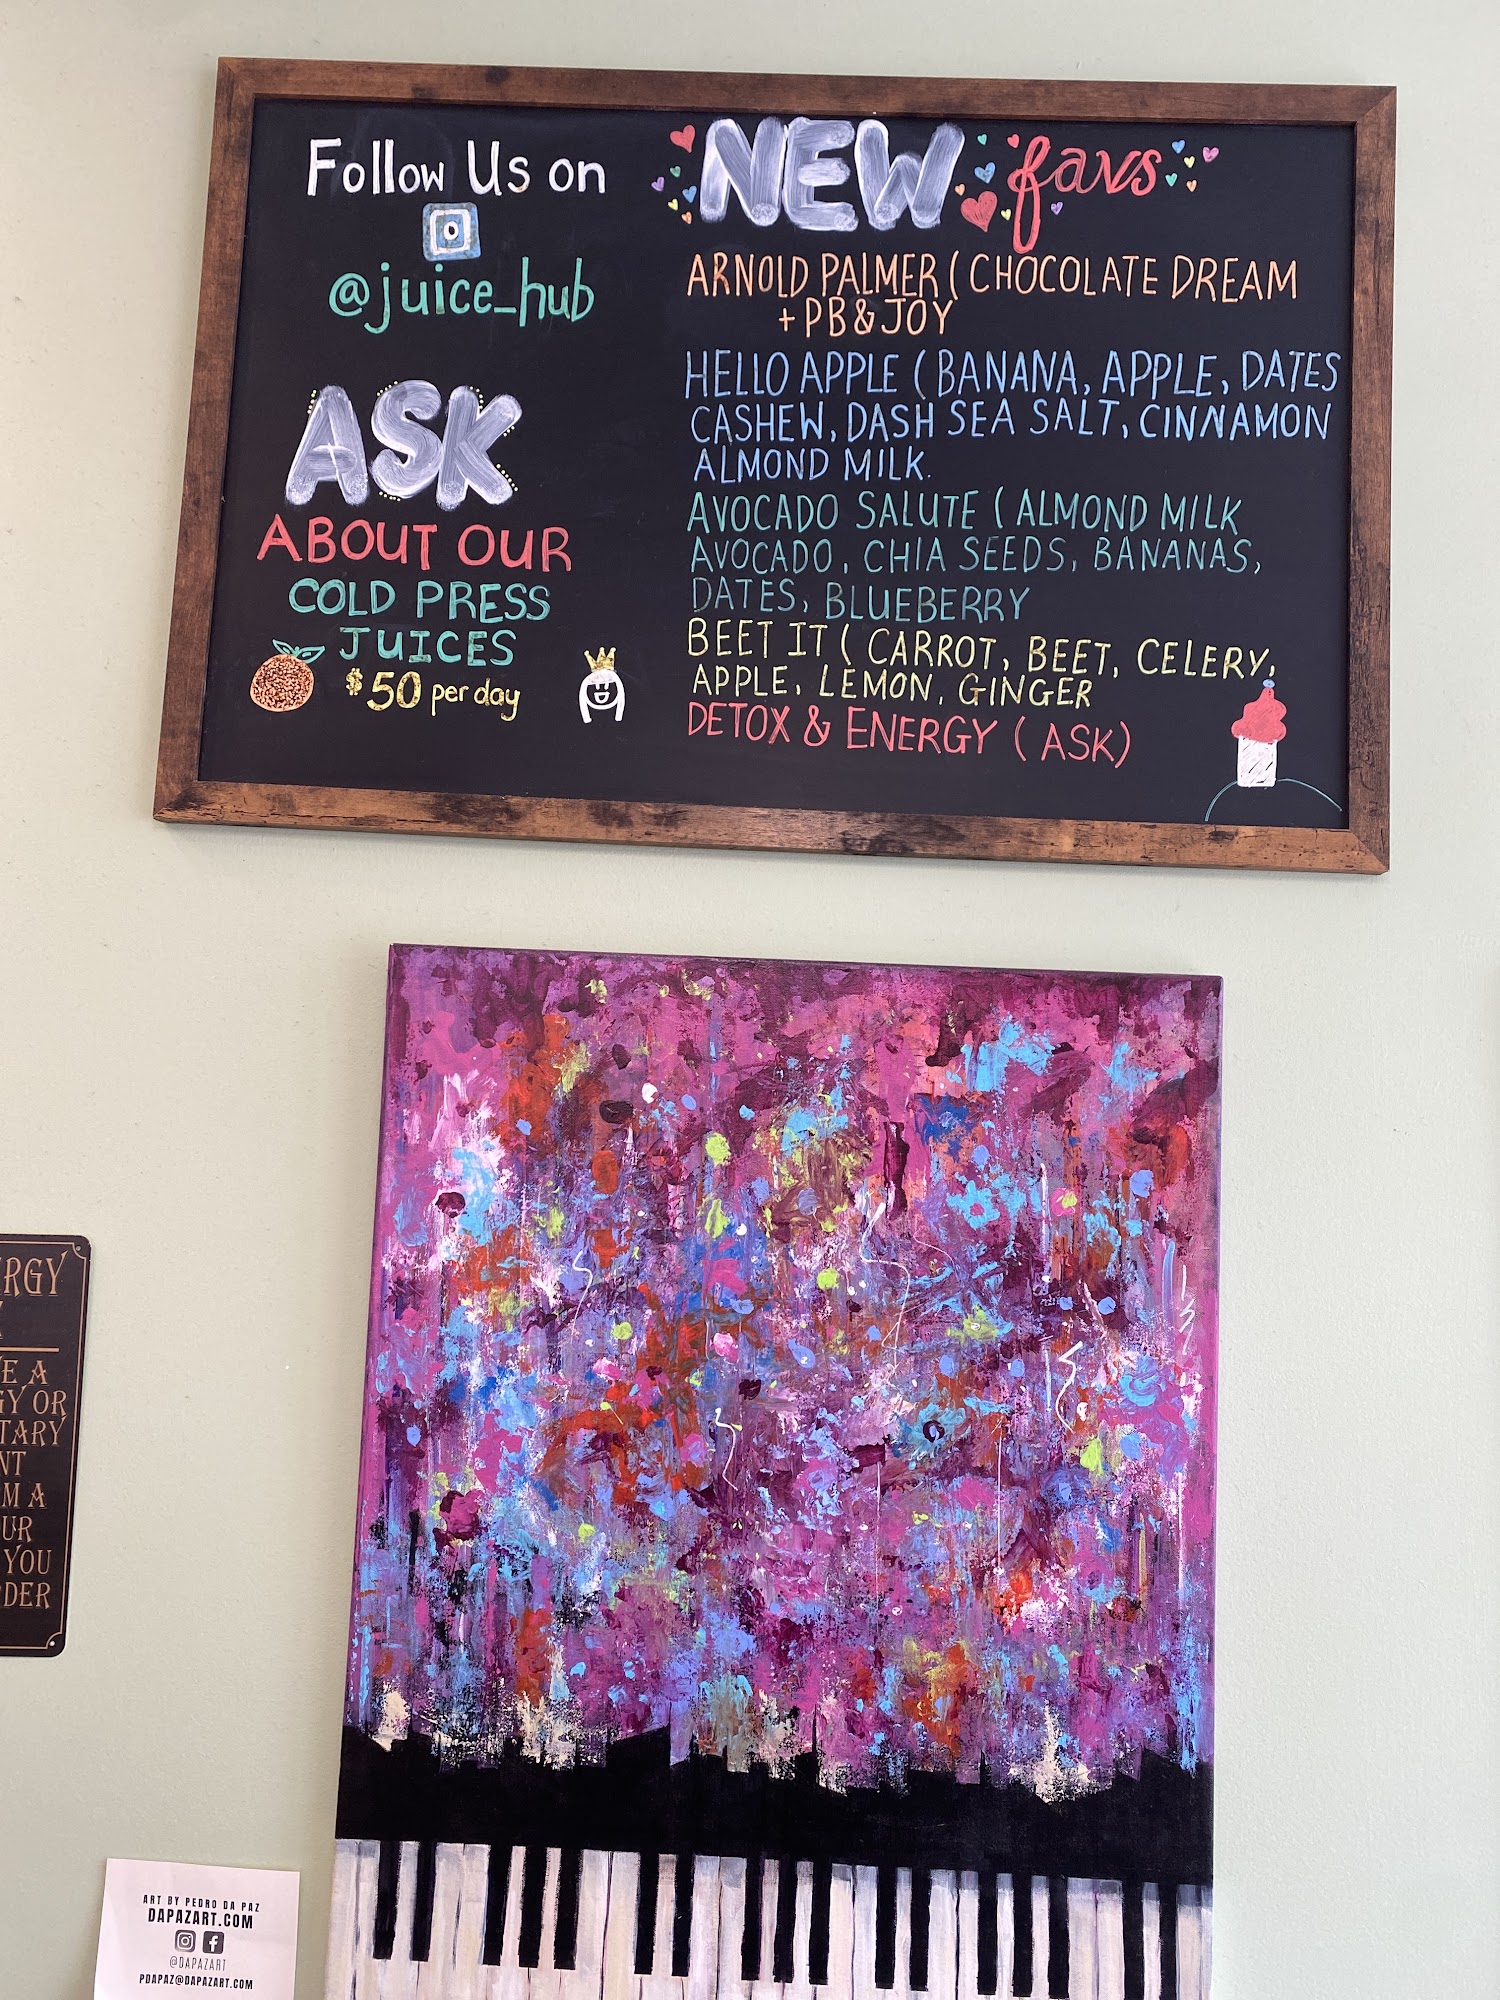 Follow Us on
@juice_hub
ASK
ABOUT OUR
COLD PRESS
JUICES
$50 per day
NEW favs
ARNOLD PALMER ( CHOCOLATE DREAM
+ PB & JOY
HELLO APPLE ( BANANA, APPLE, DATES
CASHEW, DASH SEA SALT, CINNAMON
ALMOND MILK.
AVOCADO SALUTE ( ALMOND MILK
AVOCADO, CHIA SEEDS, BANANAS,
DATES, BLUEBERRY
BEET IT ( CARROT, BEET, CELERY,
APPLE, LEMON, GINGER
DETOX & ENERGY ( ASK)
RGY
E A
GY OR
TARY
NT
M A
UR
YOU
DER
ART BY PEDRO DA PAZ
DAPAZART.COM
@DAPAZART
PDAPAZ@DAPAZART.COM